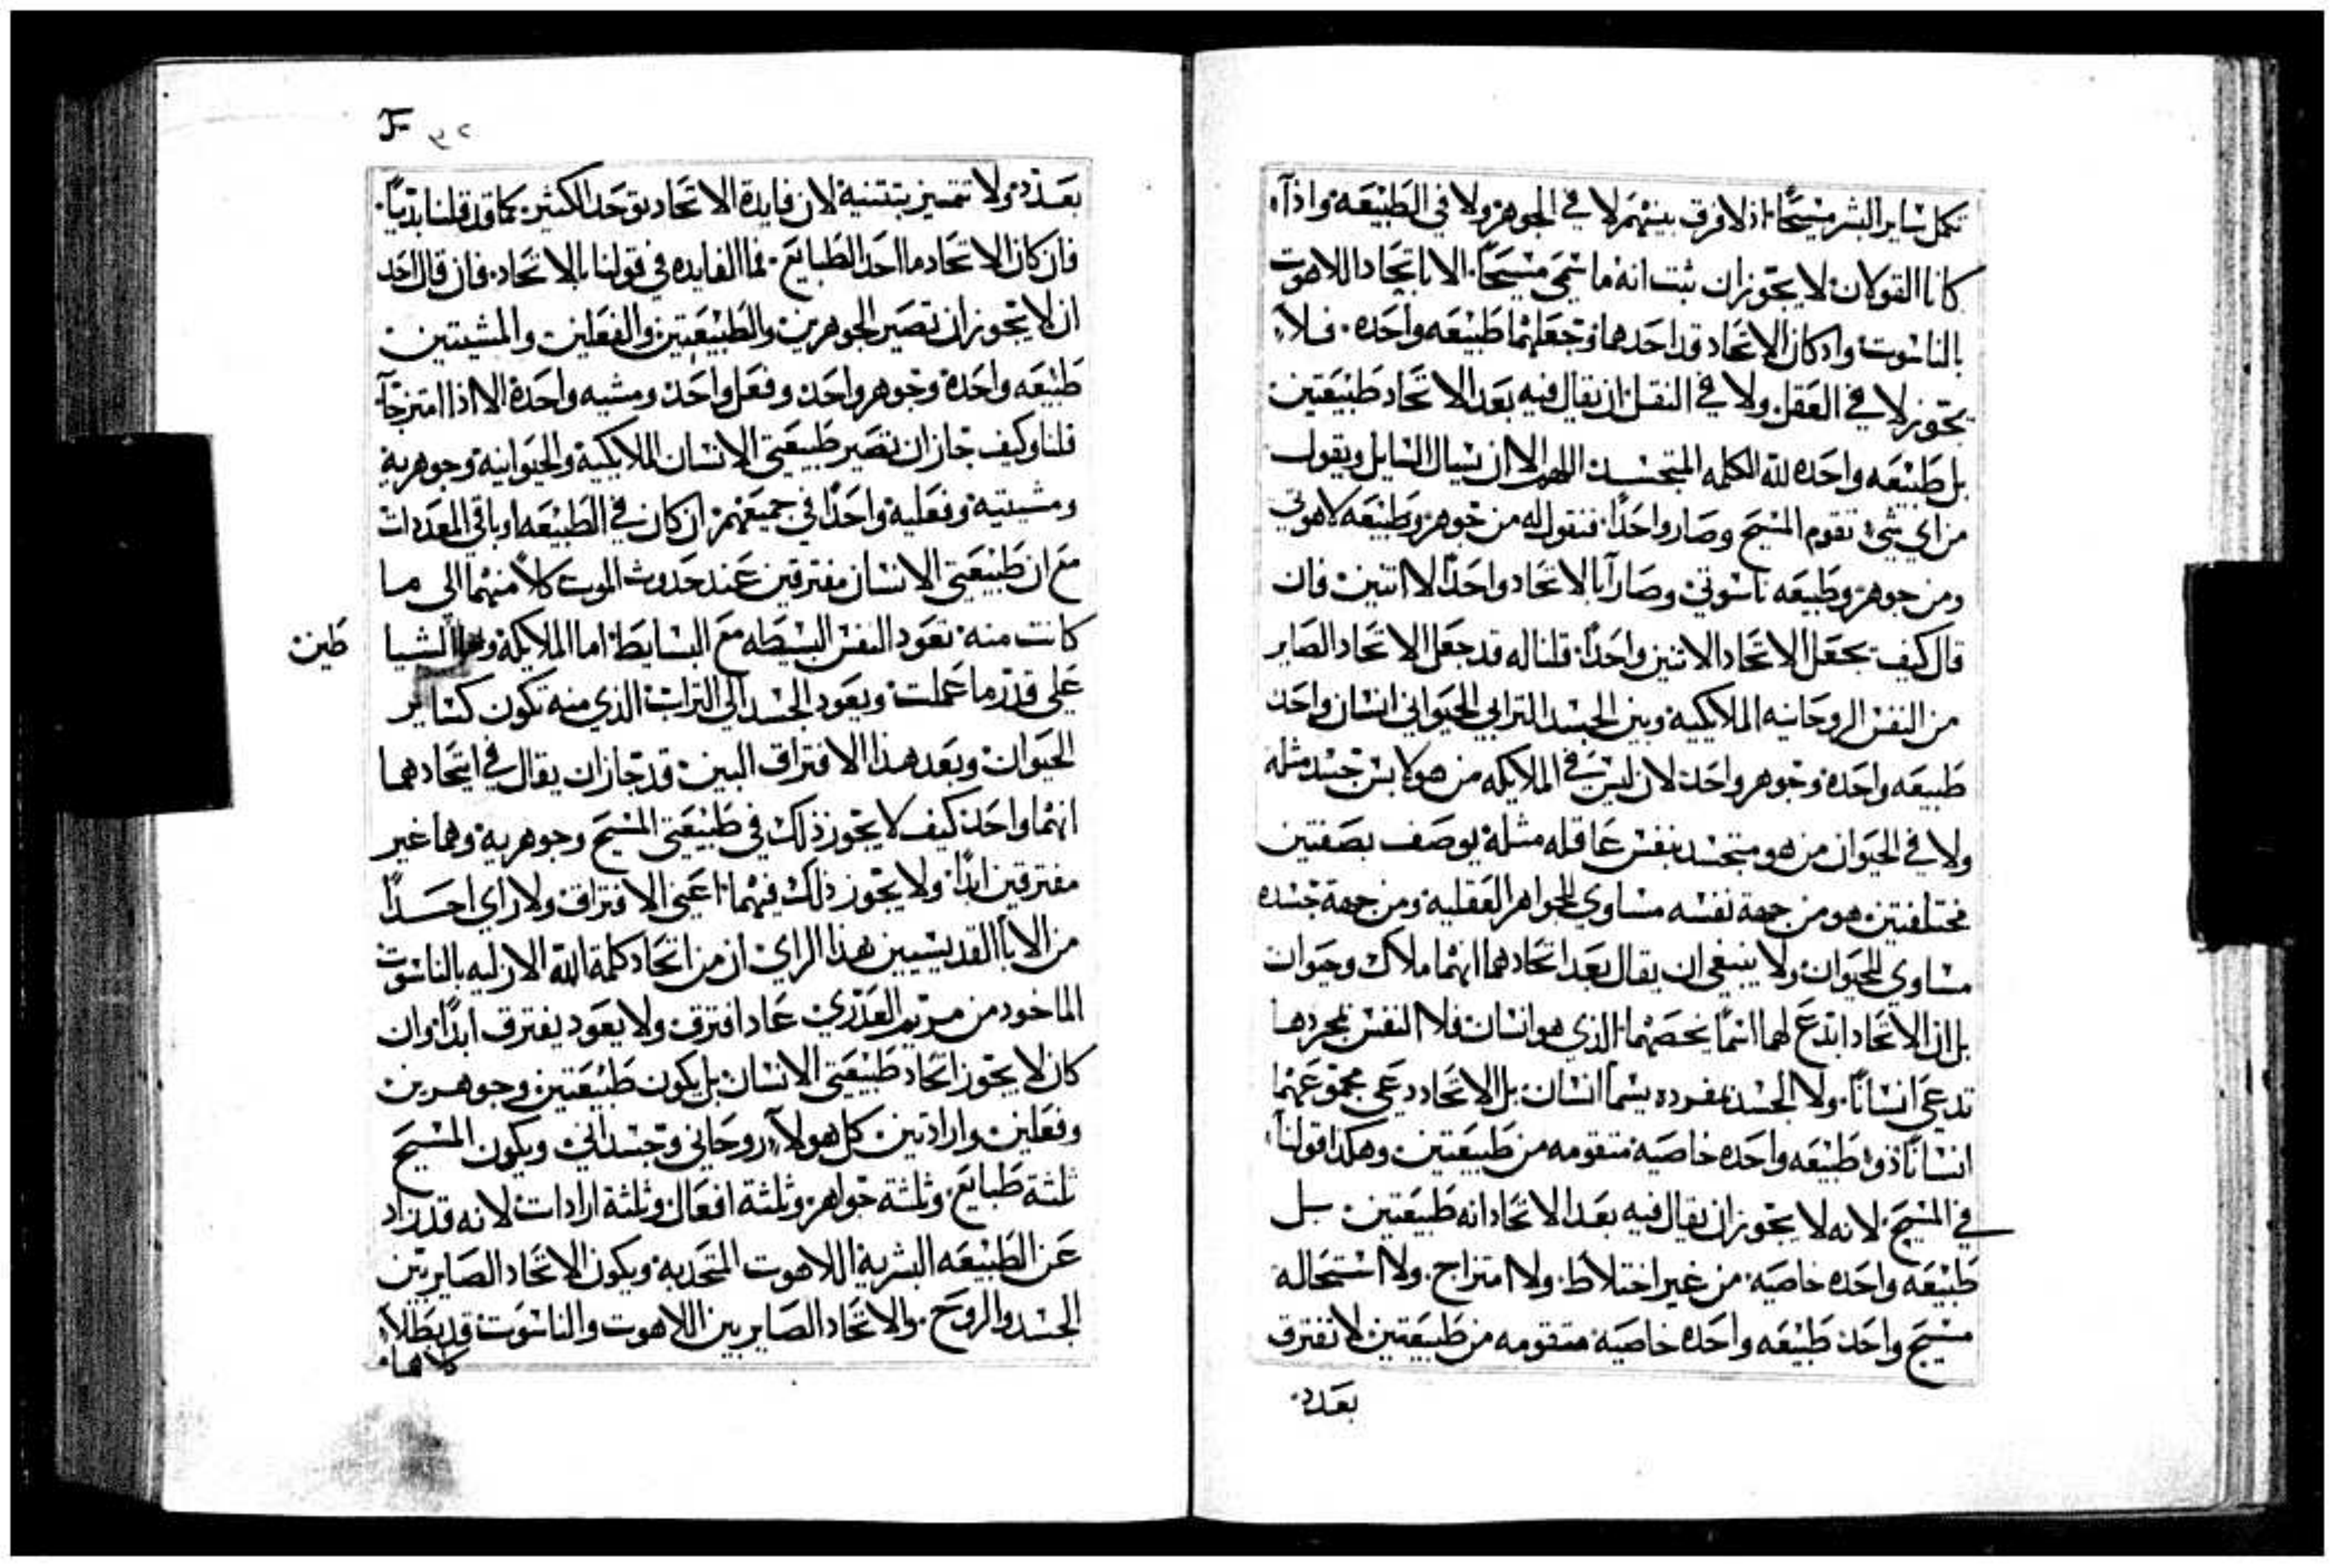 تكمل ساير البشر مسيحًا. اذ لا فرق بينهم لا في الجوهر ولا في الطبيعه واذا
كانا القولان لا يجوزان ثبت انه ما سمي مسيحًا. الا باتحاد اللاهوت
بالناسوت واد كان الاتحاد قد احدهما وجعلهما طبيعه واحده. فلا
يجوز لا في العقل ولا في النقل ان يقال فيه بعد الاتحاد طبيعتين
بل طبيعه واحده لله الكلمه المتجسد اللهم الا ان يسال السايل ويقول
من اي شي تقوم المسيح وصار واحدًا. فنقول له من جوهر وطبيعه لاهوتي
ومن جوهر وطبيعه ناسوتي وصارا بالاتحاد واحدًا لا اتنين فان
قال كيف يجعل الاتحاد الاتنين واحدًا. قلنا له قد جعل الاتحاد الصاير
من النفس الروحانيه الملايكيه وبين الجسد الترابي الحيواني انسان واحد
طبيعه واحده وجوهر واحد لان ليس في الملايكه من هو لابس جسد مثله
ولا في الحيوان من هو متجسد بنفس عاقله مثله يوصف بصفتين
مختلفتين هو من جهة نفسه مساوي للجواهر العقليه ومن جهة جسده
مساوي للحيوان ولا ينبغي ان يقال بعد اتحادهما انهما ملاك وحيوان
بل ان الاتحاد ابدع لهما اسمًا يخصهما الذي هو انسان فلا النفس بمجردها
تدعى انسانًا. ولا الجسد بمفرده يسما انسان بل الاتحاد دعى مجموعهما
انسانًا ذو طبيعه واحده خاصيه متقومه من طبيعتين وهكدا قولنا
في المسيح لانه لا يجوز ان يقال فيه بعد الاتحاد انه طبيعتين بل
طبيعه واحده خاصيه من غير اختلاط ولا امتزاج. ولا استحاله
مسيح واحد طبيعه واحده خاصيه متقومه من طبيعتين لا تفترق
بعدد
٣٢
بعدد ولا تتميز بتتنية لان فايدة الاتحاد توحد الكثير كما قد قلنا بديًا.
فان كان الاتحاد ما احد الطبايع. فما الفايده في قولنا بالاتحاد. فان قال احد
ان لا يجوز ان تصير الجوهرين والطبيعتين والفعلين والمشيتين
طبيعه واحدة وجوهر واحد وفعل واحد ومشيه واحدة الا اذا امتزجا
قلنا وكيف جاز ان تصير طبيعتي الانسان الملايكية والحيوانيه وجوهريه
ومشيتيه وفعليه واحدًا في جميعهم ان كان في الطبيعه او باقي المعددات
مع ان طبيعتي الانسان مفترقين عند حدوث الموت كلًا منهما الي ما
كانت منه تعود النفس البسيطه مع البسايط اما الملايكة الشيا
طين
علي قدر ما عملت ويعود الجسد الي التراب الذي منه تكون كساير
الحيوان وبعد هذا الافتراق البين قد جاز ان يقال في اتحادهما
انهما واحد كيف لا يجوز ذلك في طبيعتي المسيح وجوهريه وهما غير
مفترقين ابدًا ولا يجوز ذلك فيهما اعني الافتراق ولا راي احدًا
من الابا القديسيين هذا الراي ان من اتحاد كلمة الله الازليه بالناسوت
الماخود من مريم العذري عاد افترق ولا يعود يفترق ابدًا وان
كان لا يجوز اتحاد طبيعتي الانسان بل يكون طبيعتين وجوهرين
وفعلين وارادتين كل هولا روحاني وجسداني ويكون المسيح
ثلثة طبايع وثلثة جواهر وثلثة افعال وثلثة ارادات لانه قد زاد
عن الطبيعه البشرية اللاهوت المتحد به ويكون الاتحاد الصاير بين
الجسد والروح. والاتحاد الصاير بين اللاهوت والناسوت قد بطلا
كلاهما